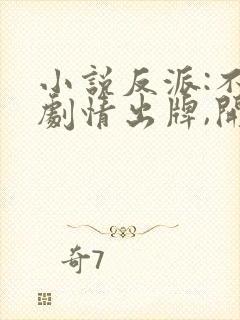 小說反派:不
劇情出牌,開
奇7